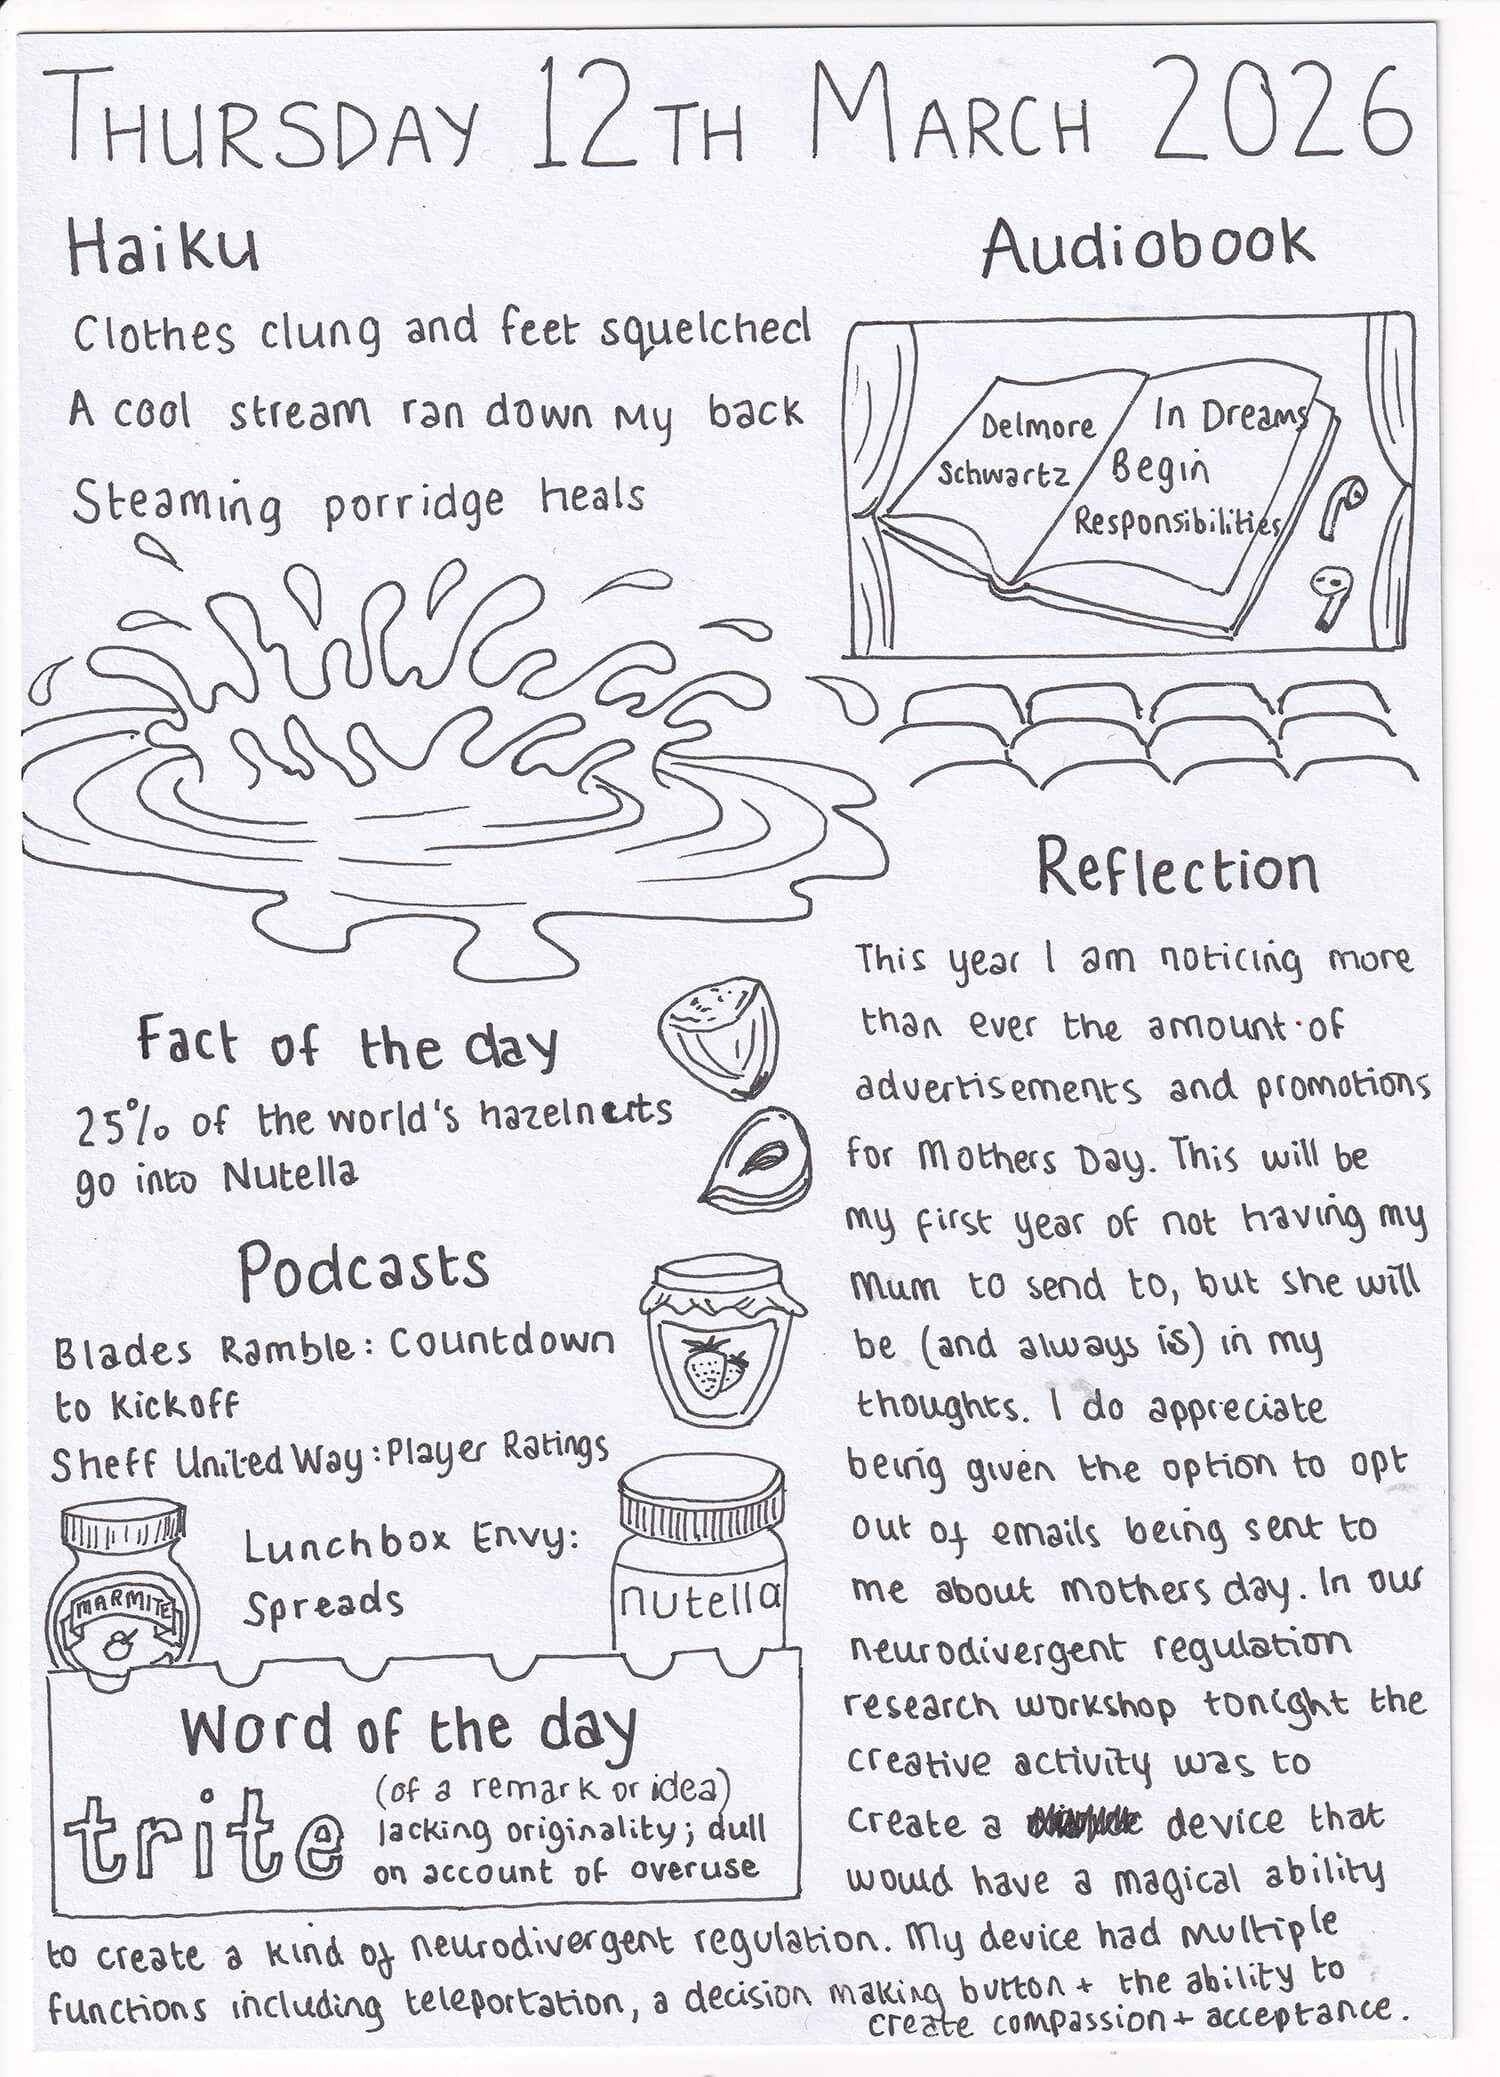 THURSDAY 12TH MARCH 2026
Haiku
Clothes clung and feet squelched
A cool stream ran down my back
Steaming porridge heals
Audiobook
Delmore
Schwartz
In Dreams
Begin
Responsibilities
Fact of the day
25% of the world's hazelnuts
go into Nutella
Podcasts
Blades Ramble: Countdown
to Kickoff
Sheff United Way: Player Ratings
Lunchbox Envy:
Spreads
MARMITE
nutella
Word of the day
trite
(of a remark or idea)
lacking originality; dull
on account of overuse
Reflection
This year I am noticing more
than ever the amount of
advertisements and promotions
for Mothers Day. This will be
my first year of not having my
Mum to send to, but she will
be (and always is) in my
thoughts. I do appreciate
being given the option to opt
out of emails being sent to
me about mothers day. In our
neurodivergent regulation
research workshop tonight the
creative activity was to
create a device that
would have a magical ability
to create a kind of neurodivergent regulation. My device had multiple
functions including teleportation, a decision making button + the ability to
create compassion + acceptance.